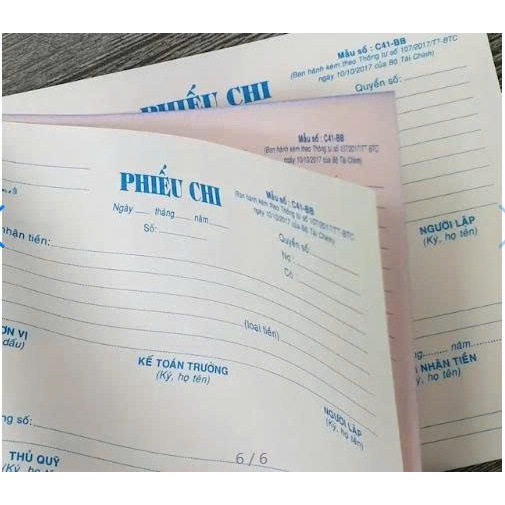 Mẫu số : C41-BB
(Ban hành kèm theo Thông tư số 107/2017/TT-BTC
ngày 10/10/2017 của Bộ Tài Chính)
PHIẾU CHI
Quyển số:
NGƯỜI LẬP
(Ký, họ tên)
năm
NHẬN TIỀN
họ tên)
Mẫu số : C41-BB
(Ban hành kèm theo Thông tư số 107/2017/TT-BTC
ngày 10/10/2017 của Bộ Tài Chính)
PHIẾU CHI
Mẫu số : C41-BB
(Ban hành kèm theo Thông tư số 107/2017/TT-BTC
ngày 10/10/2017 của Bộ Tài Chính)
Ngày tháng năm
Số:
Quyển số:
Nợ :
Có :
nhận tiền:
(loại tiền)
ƠN VỊ
dấu)
KẾ TOÁN TRƯỞNG
(Ký, họ tên)
NGƯỜI LẬP
(Ký, họ tên)
ng số:
THỦ QUỸ
(Ký, họ tên)
6 / 6